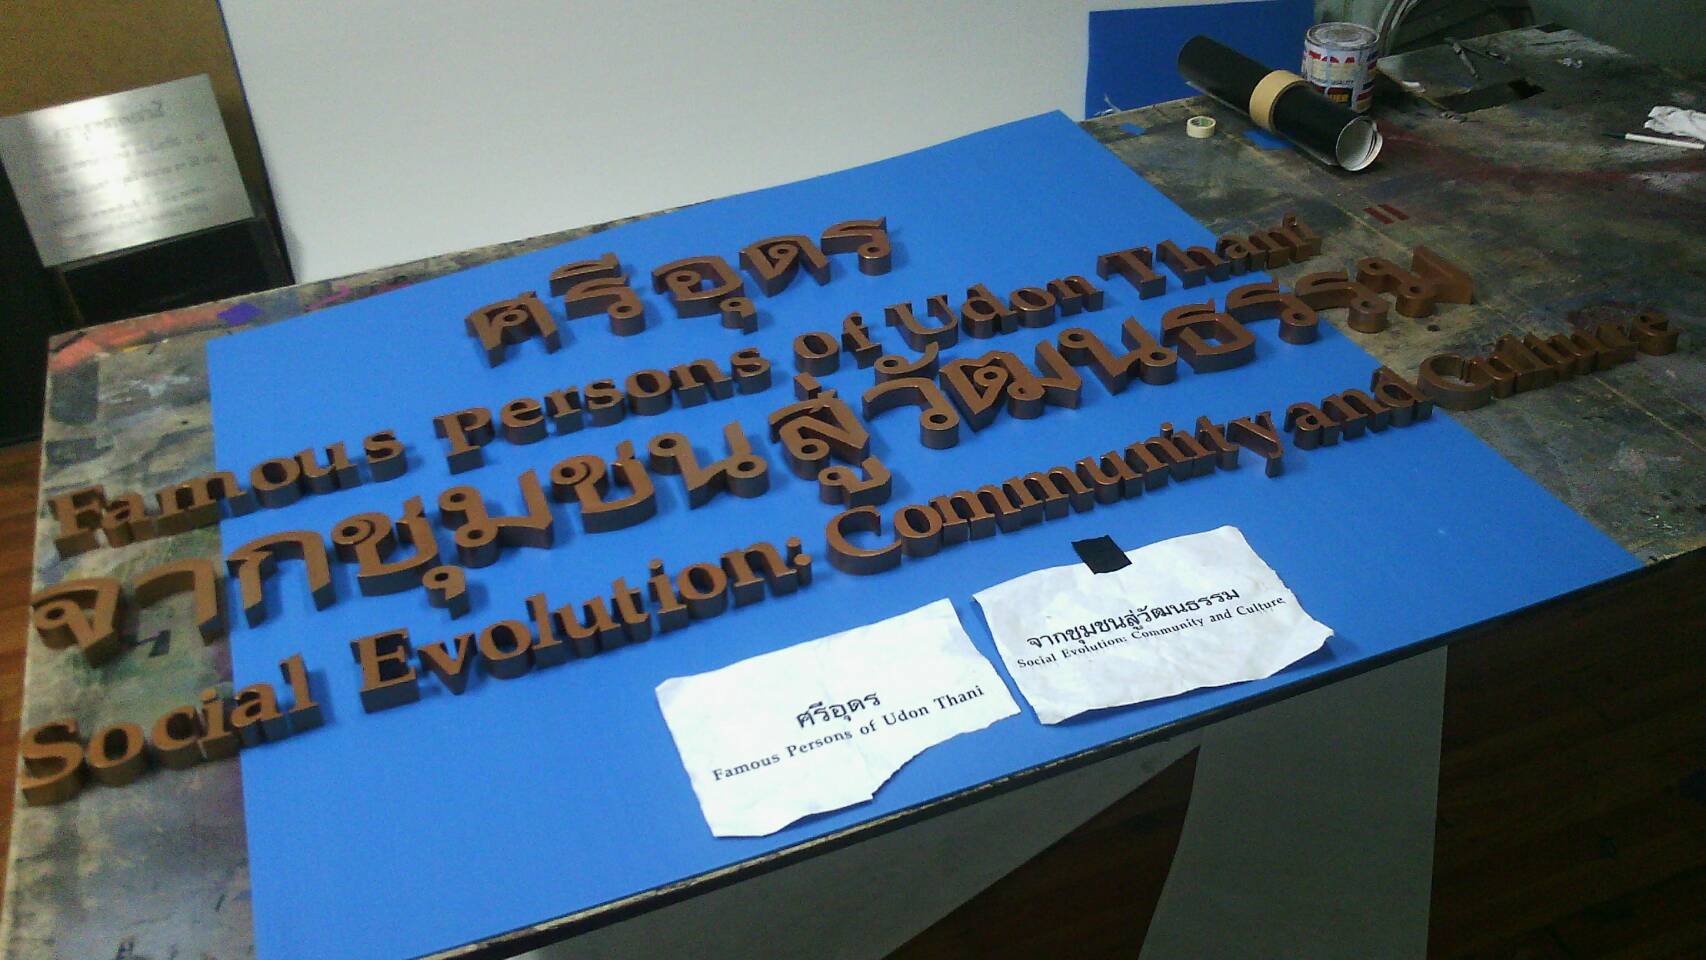 ศรีอุดร
Famous Persons of Udon Thani
จากชุมชนสู่วัฒนธรรม
Social Evolution: Community and Culture
ศรีอุดร
Famous Persons of Udon Thani
จากชุมชนสู่วัฒนธรรม
Social Evolution: Community and Culture